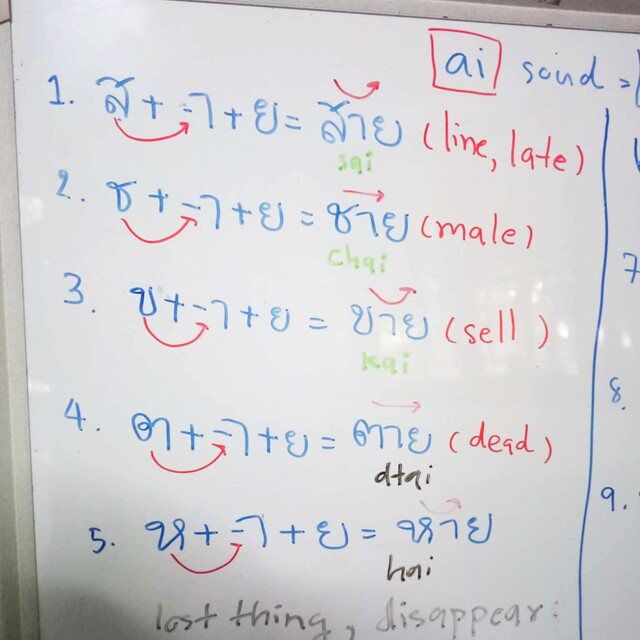 ai sound =
1. ส + -า + ย = สาย (line, late)
sai
2. ช + -า + ย = ชาย (male)
chai
3. ข + -า + ย = ขาย (sell)
kai
4. ต + -า + ย = ตาย (dead)
dtai
5. ห + -า + ย = หาย
hai
lost thing, disappear
7
8.
9.